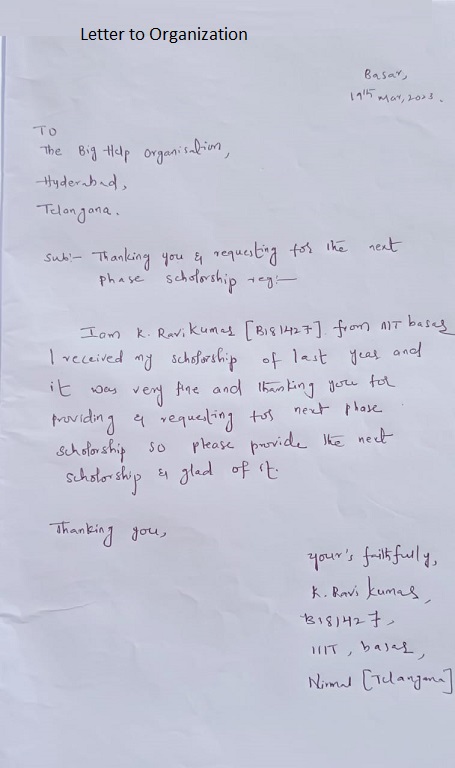 Letter to Organization
Basar,
19th Mar, 2023.
TO
The Big Help organisation,
Hyderabad,
Telangana.
Sub:- Thanking you & requesting for the next
phase scholorship reg:-
Iam K. Ravi Kumar [B181427] from IIIT basar
I received my scholorship of last year and
it was very fine and thanking you for
providing & requesting for next phase
scholorship so please provide the next
scholorship & glad of it.
Thanking you,
your's faithfully,
K. Ravi kumar,
B181427,
IIIT, basar,
Nirmal [Telangana]